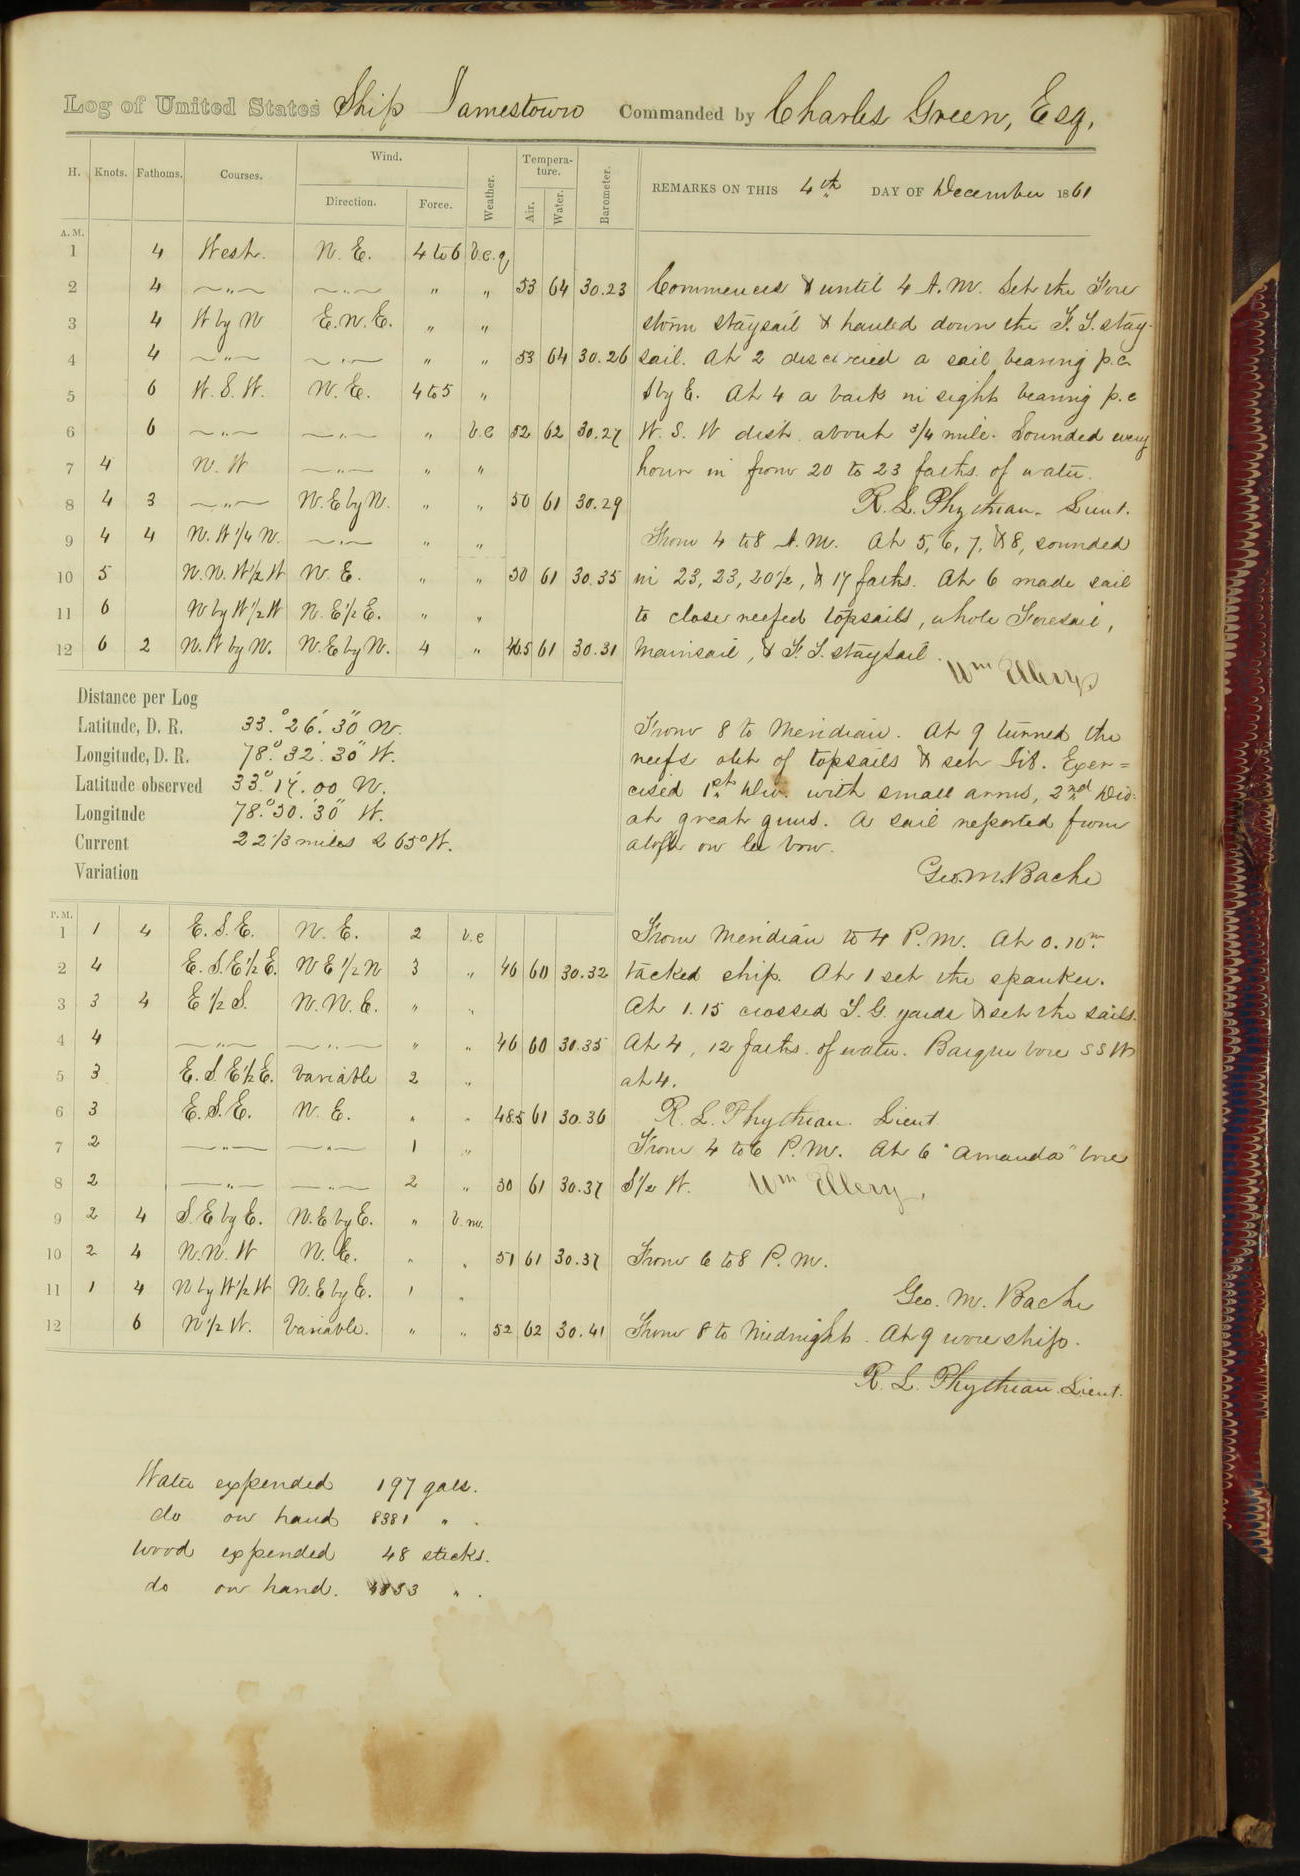 Log of United States Ship Jamestown Commanded by Charles Green, Esq.
H. Knots. Fathoms. Courses. Wind. Direction. Force. Weather. Temperature. Air. Water. Barometer. REMARKS ON THIS 4th DAY OF December 1861
A.M.
1 4 West. N. E. 4 to 6 b.c.q
2 4 〃 〃 〃 〃 53 64 30.23 Commences & until 4 A.M. Set the Fore
3 4 W by N E.N.E. 〃 〃 storm staysail & hauled down the F. T. stay-
4 4 〃 〃 〃 〃 53 64 30.26 sail. At 2 discovered a sail bearing p.c.
5 6 W. S. W. N. E. 4 to 5 〃 S by E. At 4 a bark in sight bearing p.c
6 6 〃 〃 〃 b.c 52 62 30.27 W. S. W dist. about 3/4 mile. Sounded every
7 4 N. W 〃 〃 〃 hour in from 20 to 23 faths. of water.
8 4 3 〃 N.E by N. 〃 〃 50 61 30.29 R. L. Phythian. Lieut.
9 4 4 N. W 1/4 N. 〃 〃 〃 From 4 to 8 A.M. At 5, 6, 7, & 8, sounded
10 5 N.N. W 1/2 W N. E. 〃 〃 50 61 30.35 in 23, 23, 20 1/2, & 17 faths. At 6 made sail
11 6 N by W 1/2 W N. E 1/2 E. 〃 〃 to close reefed topsails, whole Foresail,
12 6 2 N. W by N. N.E by N. 4 〃 46.5 61 30.31 Mainsail, & F. T. staysail.
Wm Ellery
Distance per Log
Latitude, D. R. 33.° 26.' 30" N.
Longitude, D. R. 78.° 32.' 30" W.
Latitude observed 33.° 17.' 00 N.
Longitude 78.° 50.' 30" W.
Current 22 1/3 miles S 65° W.
Variation
From 8 to Meridian. At 9 turned the
reefs out of topsails & set Jib. Exer=
cised 1st Div. with small arms, 2nd Div.
at great guns. A sail reported from
aloft on lee bow.
Geo. M. Bache
P.M.
1 1 4 E. S. E. N. E. 2 b.c From Meridian to 4 P.M. At 0.10m.
2 4 E. S. E 1/2 E. N E 1/2 N 3 〃 46 60 30.32 tacked ship. At 1 set the spanker.
3 3 4 E 1/2 S. N. N. E. 〃 〃 At 1.15 crossed T. G. yards & set the sails.
4 4 〃 〃 〃 〃 46 60 30.35 At 4, 12 faths. of water. Barque bore SSW
5 3 E. S. E 1/2 E. Variable 2 〃 at 4.
6 3 E. S. E. N. E. 〃 〃 48.5 61 30.36 R. L. Phythian. Lieut
7 2 〃 〃 1 〃 From 4 to 6 P.M. At 6 "Amanda" bore
8 2 〃 〃 2 〃 50 61 30.37 S 1/2 W. Wm Ellery.
9 2 4 S. E by E. N.E by E. 〃 b.m.
10 2 4 N.N. W N. E. 〃 〃 51 61 30.37 From 6 to 8 P.M.
11 1 4 N by W 1/2 W N. E by E. 1 〃 Geo. M. Bache
12 6 N 1/2 W. Variable. 〃 〃 52 62 30.41 From 8 to Midnight. At 9 wore ship.
R. L. Phythian. Lieut.
Water expended 197 gals.
do on hand 8381 〃 .
Wood expended 48 sticks.
do on hand. 〃 .